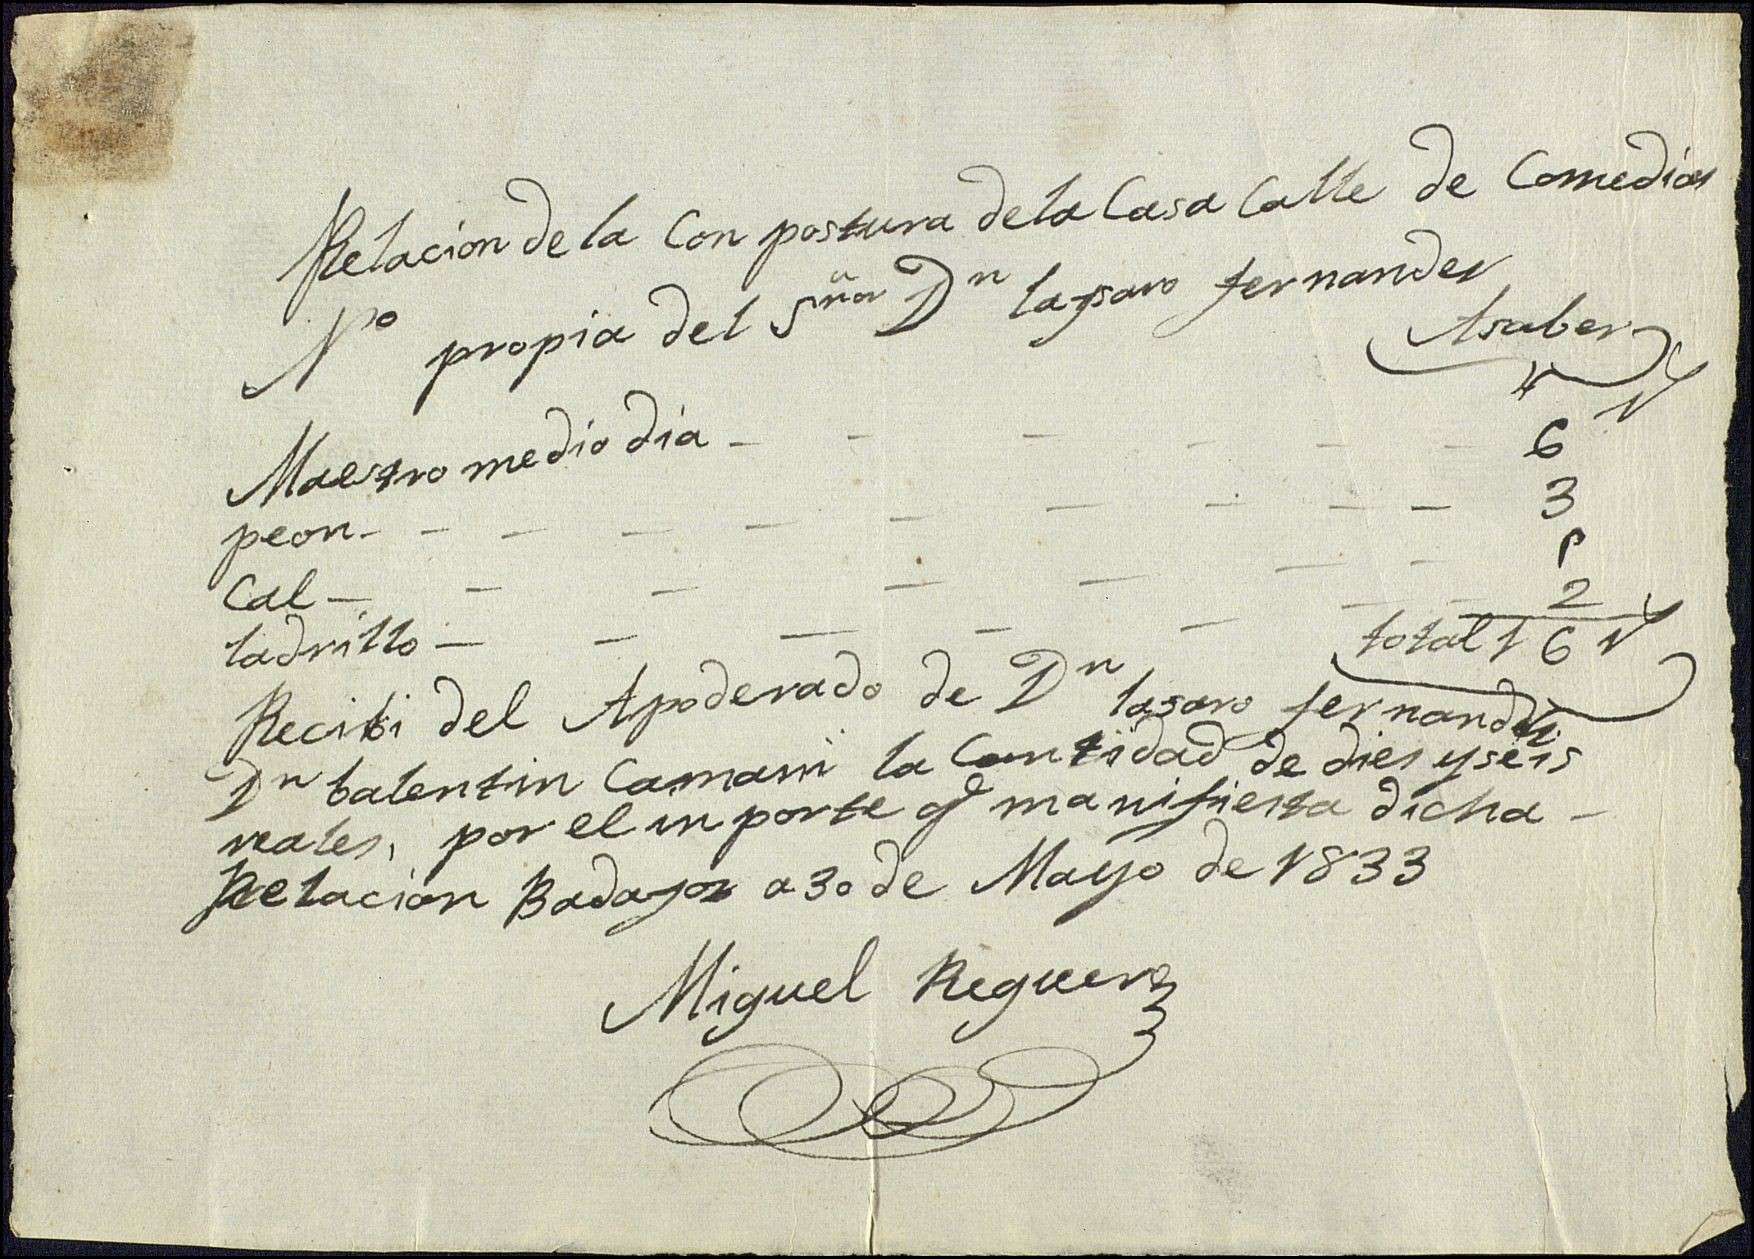 Relacion de la Conpostura dela Casa Calle de Comedias
Nº propia del Sñor Dn lasaro fernandes
Asaber
Maestro medio dia - - - - - - 6
peon - - - - - - - - - - 3
Cal - - - - - - -
ladrillo - - - - - - - 2
total 16
Recibi del Apoderado de Dn lasaro fernandes
Dn balentin Camani la Cantidad de dies y seis
reales, por el inporte q manifiesta dicha -
Relacion Badajoz a 30 de Mayo de 1833
Miguel Reguera